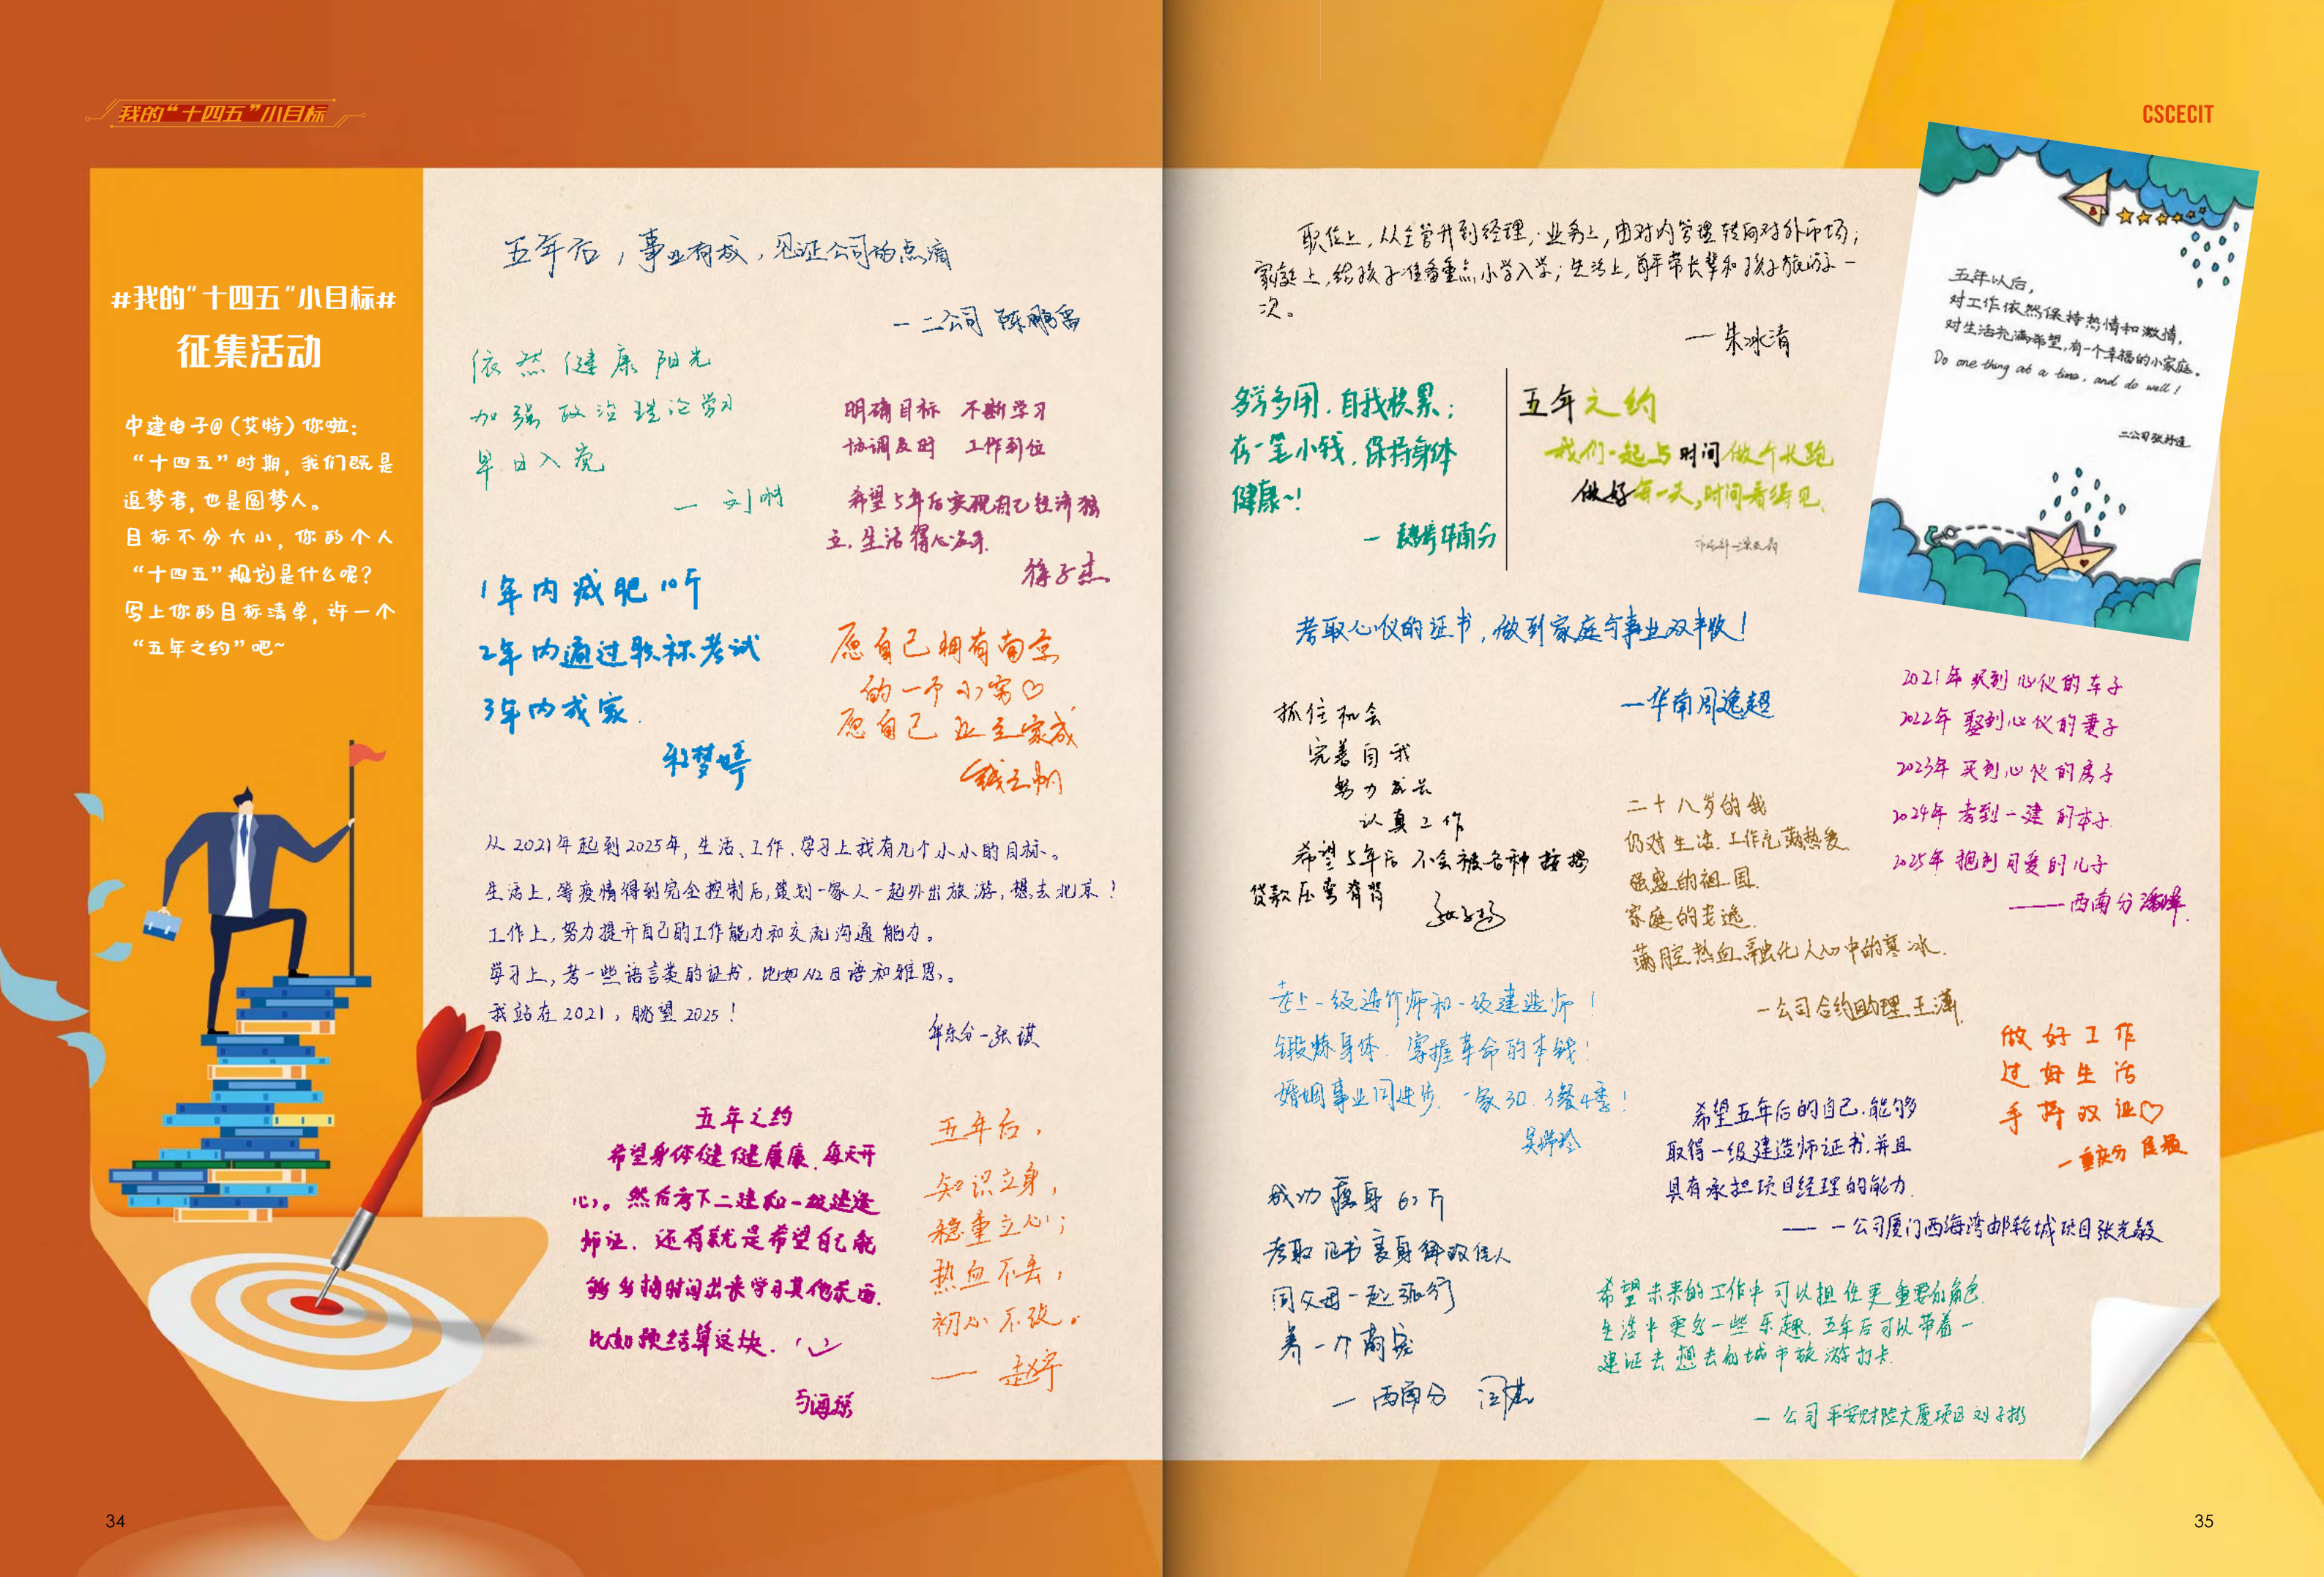 我的“十四五”小目标
CSCECIT
#我的“十四五”小目标#
征集活动
中建电子@（艾特）你啦：
“十四五”时期，我们既是
追梦者，也是圆梦人。
目标不分大小，你的个人
“十四五”规划是什么呢？
写上你的目标清单，许一个
“五年之约”吧~
五年后，事业有成，见证公司的点滴
—二公司 陈鹏
依然健康阳光
加强政治理论学习
早日入党
— 刘
明确目标 不断学习
协调及时 工作到位
希望5年后实现自己经济独
立，生活得心应手
徐子杰
1年内减肥10斤
2年内通过职称考试
3年内成家
梦婷
愿自己拥有南京
的一个小窝♡
愿自己业立家成
钱之帆
从2021年起到2025年，生活、工作、学习上我有几个小小的目标。
生活上，等疫情得到完全控制后，策划一家人一起外出旅游，想去北京！
工作上，努力提升自己的工作能力和交流沟通能力。
学习上，考一些语言类的证书，比如N2日语和雅思。
我站在2021，眺望2025！
华东分-张祺
五年之约
希望身体健健康康，每天开
心。然后考下二建和一级建造
师证，还有就是希望自己能
够多抽时间出来学习其他东西，
比如预结算这块。
海
五年后，
知识立身，
稳重立心；
热血不丢，
初心不改。
— 赵宇
34
职位上，从主管升到经理，业务上，由对内管理转向对外市场；
家庭上，给孩子准备重点小学入学；生活上，每年带长辈和孩子旅游一
次。
—朱冰清
五年以后，
对工作依然保持热情和激情，
对生活充满希望，有一个幸福的小家庭。
Do one thing at a time, and do well!
二公司张
多学多用，自我积累；
存一笔小钱，保持身体
健康~！
— 华南分
五年之约
我们一起与时间做个长跑
做好每一天，时间看得见
考取心仪的证书，做到家庭与事业双丰收！
—华南周逸超
抓住机会
完善自我
努力成长
认真工作
希望5年后不会被各种按揭
贷款压弯脊背
2021年买到心仪的车子
2022年娶到心仪的妻子
2023年买到心仪的房子
2024年考到一建的本子
2025年抱到可爱的儿子
——西南分潘
二十八岁的我
仍对生活、工作充满热爱
强盛的祖国
家庭的
满腔热血融化人心中的寒冰
—公司合约助理 王潇
考上一级造价师和一级建造师！
锻炼身体，掌握革命的本钱！
婚姻事业同进步，一家3口，3餐4季！
吴
做好工作
过好生活
手持双证♡
—重庆分
希望五年后的自己，能够
取得一级建造师证书，并且
具有承担项目经理的能力
——一公司厦门西海湾邮轮城项目张光毅
成功瘦身60斤
考取证书
同父母一起旅行
养一个萌宠
—西南分 闫
希望未来的工作中可以担任更重要的角色
生活中更多一些乐趣，五年后可以带着一
建证去想去的城市旅游打卡
—公司平安财险大厦项目 刘子彬
35